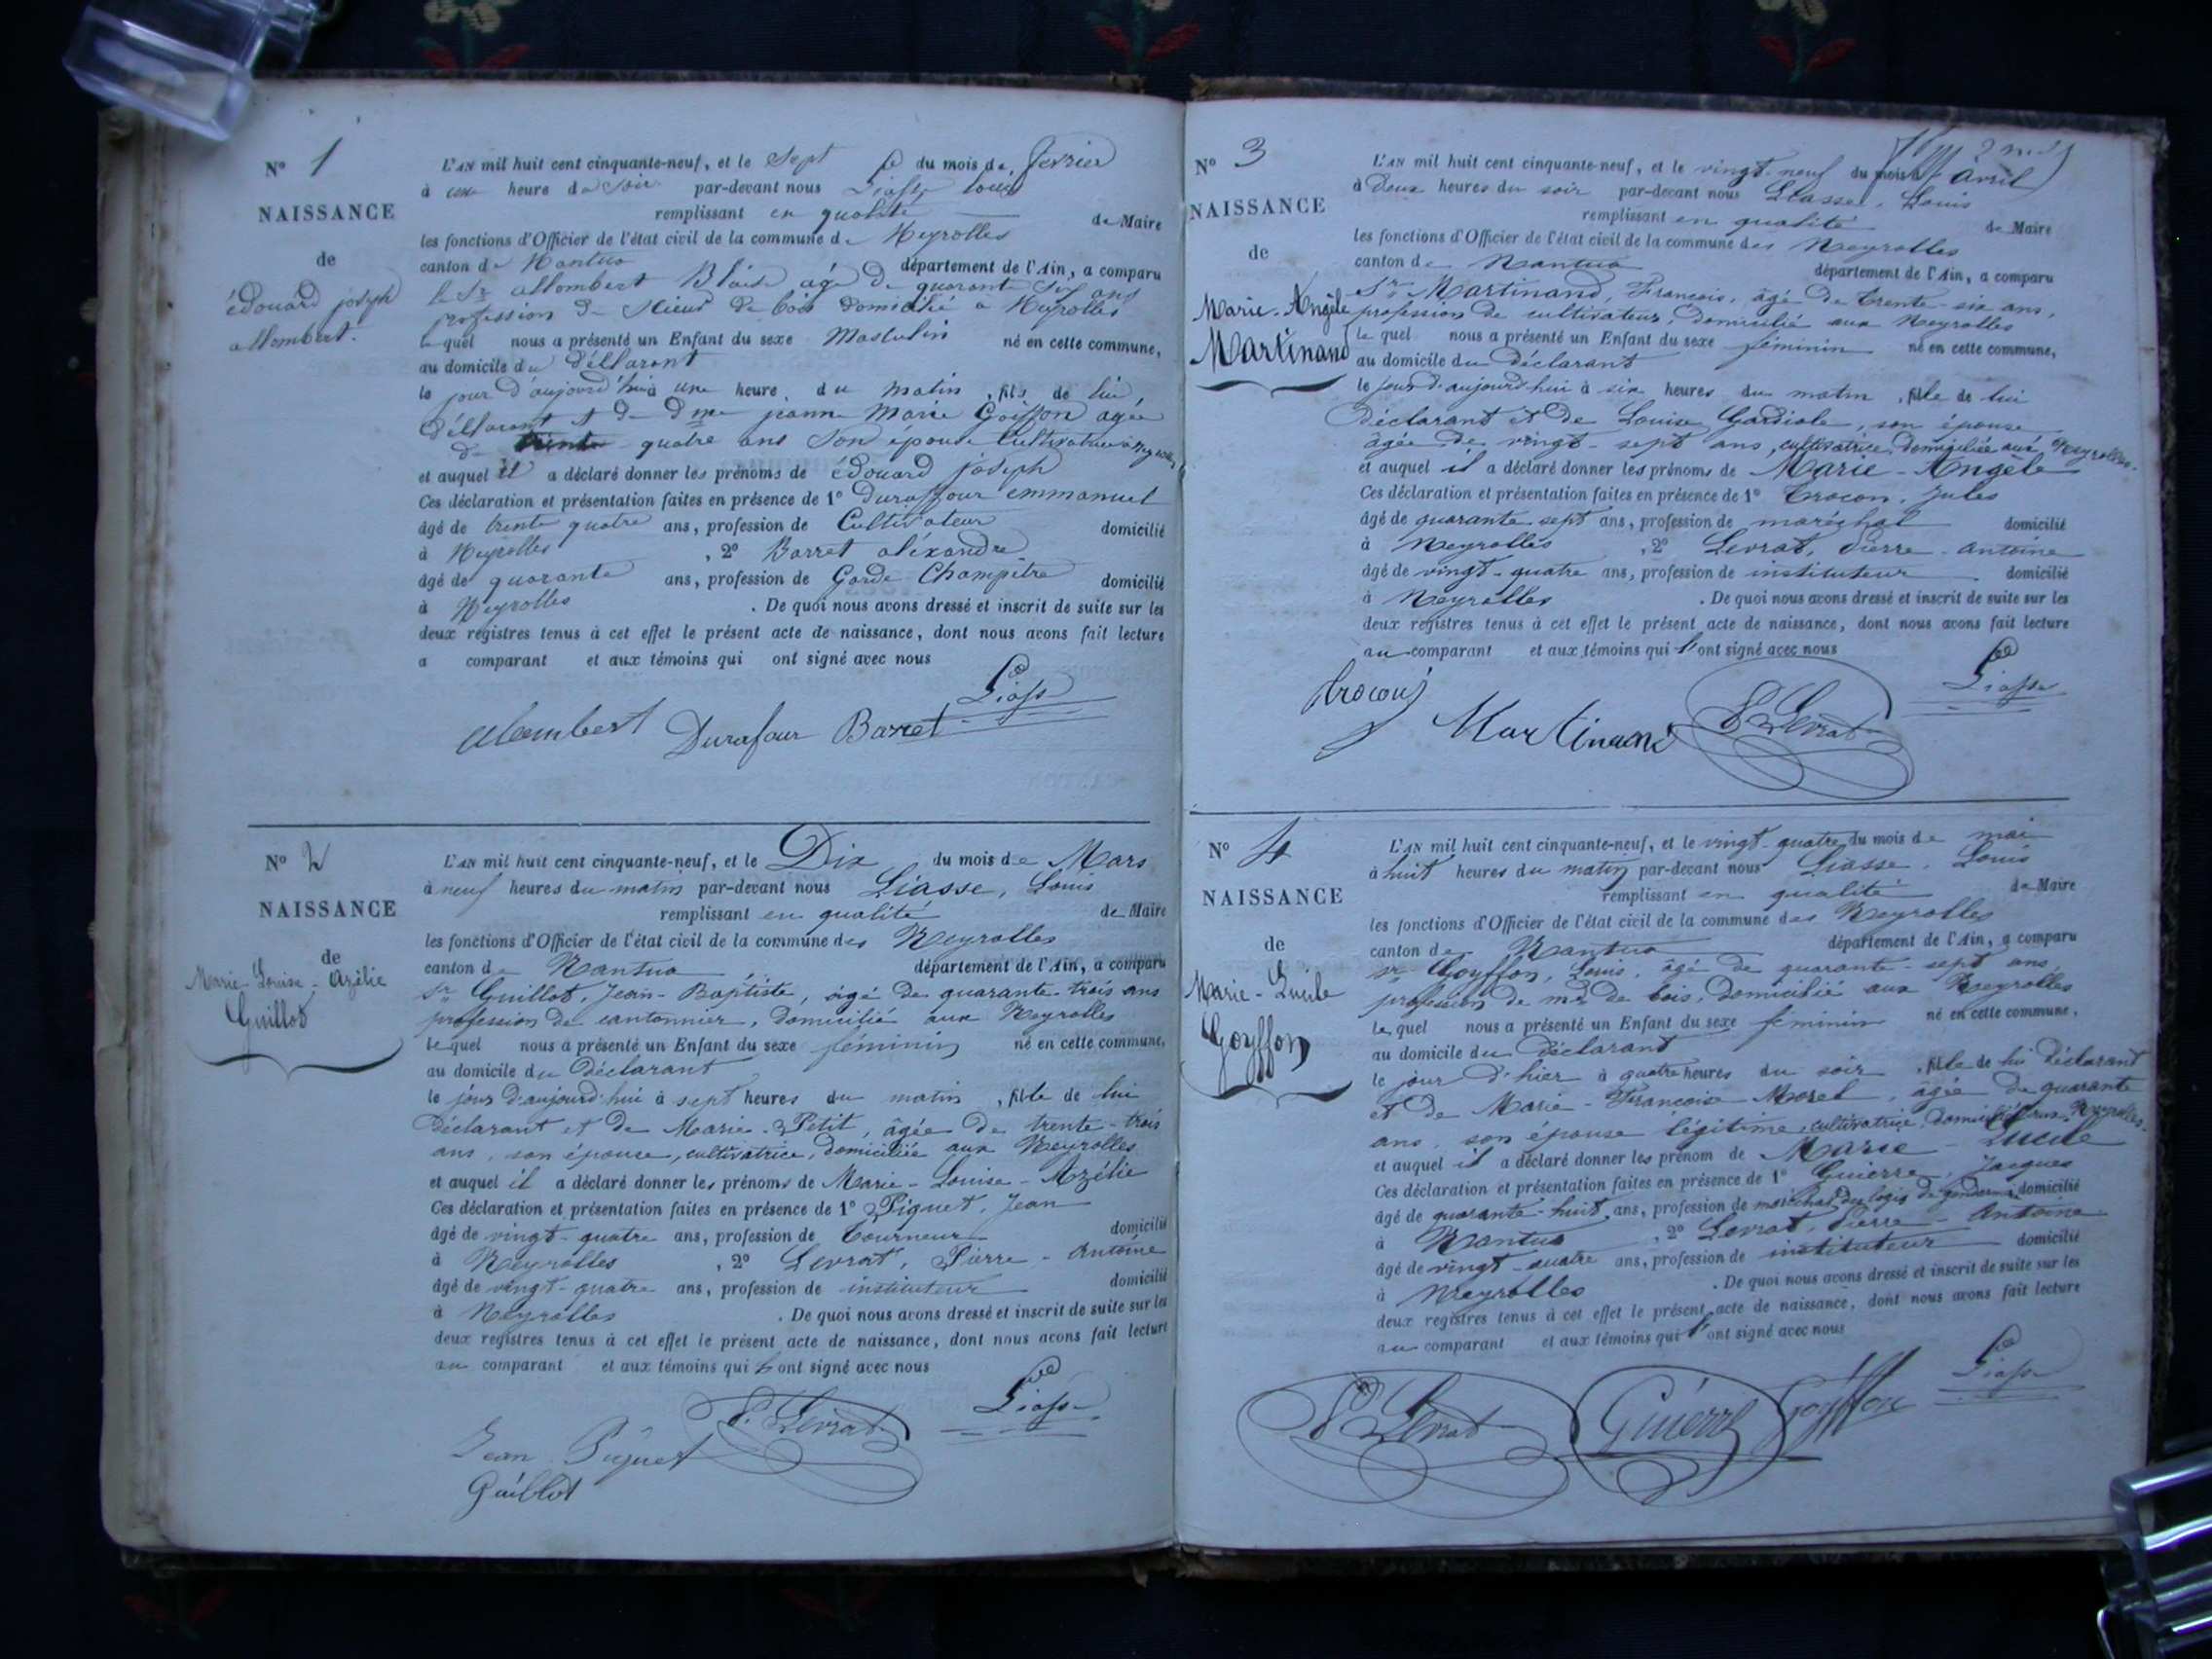 N° 1
NAISSANCE
de
édouard joseph
allombert.
L'AN mil huit cent cinquante-neuf, et le Sept du mois de février
à une heure du soir par-devant nous Liasse, Louis
remplissant en qualité de Maire
les fonctions d'Officier de l'état civil de la commune de Neyrolles
canton de Nantua département de l'Ain, a comparu
le Sr allombert Blaise agé de quarante six ans
profession de Scieur de bois domicilié a Neyrolles
lequel nous a présenté un Enfant du sexe Masculin né en cette commune,
au domicile du déclarant
le jour d'aujourd'hui à une heure du matin, fils de lui
déclarant et de dme jeanne Marie Goiffon agée
de quatre ans son épouse Cultivatrice à Neyrolles
et auquel il a déclaré donner les prénoms de édouard joseph
Ces déclaration et présentation faites en présence de 1° Duraffour emmanuel
âgé de trente quatre ans, profession de Cultivateur domicilié
à Neyrolles, 2° Barret aléxandre
âgé de quarante ans, profession de Garde Champêtre domicilié
à Neyrolles. De quoi nous avons dressé et inscrit de suite sur les
deux registres tenus à cet effet le présent acte de naissance, dont nous avons fait lecture
a comparant et aux témoins qui ont signé avec nous
Liasse
allembert Durafour Barret
N° 2
NAISSANCE
de
Marie-Louise-Azélie
Guillot
L'AN mil huit cent cinquante-neuf, et le Dix du mois de Mars
à neuf heures du matin par-devant nous Liasse, Louis
remplissant en qualité de Maire
les fonctions d'Officier de l'état civil de la commune des Neyrolles
canton de Nantua département de l'Ain, a comparu
Sr Guillot, Jean-Baptiste, âgé de quarante-trois ans
profession de cantonnier, domicilié aux Neyrolles
lequel nous a présenté un Enfant du sexe féminin né en cette commune,
au domicile du déclarant
le jour d'aujourd'hui à sept heures du matin, fille de lui
déclarant et de Marie Petit, âgée de trente-trois
ans, son épouse, cultivatrice, domiciliée aux Neyrolles
et auquel il a déclaré donner les prénoms de Marie-Louise-Azélie
Ces déclaration et présentation faites en présence de 1° Piquet, Jean
âgé de vingt-quatre ans, profession de tourneur domicilié
à Neyrolles, 2° Levrat, Pierre-Antoine
âgé de vingt-quatre ans, profession de instituteur domicilié
à Neyrolles. De quoi nous avons dressé et inscrit de suite sur les
deux registres tenus à cet effet le présent acte de naissance, dont nous avons fait lecture
au comparant et aux témoins qui ont signé avec nous
Liasse
P. Levrat
Jean Piquet
Guillot
N° 3
NAISSANCE
de
Marie-Angèle
Martinand
L'AN mil huit cent cinquante-neuf, et le vingt-neuf du mois d'avril
à Deux heures du soir par-devant nous Liasse, Louis
remplissant en qualité de Maire
les fonctions d'Officier de l'état civil de la commune des Neyrolles
canton de Nantua département de l'Ain, a comparu
Sr Martinand, François, âgé de trente-six ans,
profession de cultivateur, domicilié aux Neyrolles
lequel nous a présenté un Enfant du sexe féminin né en cette commune,
au domicile du déclarant
le jour d'aujourd'hui à six heures du matin, fille de lui
déclarant et de Louise Gardiole, son épouse
âgée de vingt-sept ans, cultivatrice, domiciliée aux Neyrolles.
et auquel il a déclaré donner les prénoms de Marie-Angèle
Ces déclaration et présentation faites en présence de 1° Crocon, Jules
âgé de quarante-sept ans, profession de maréchal domicilié
à Neyrolles, 2° Levrat, Pierre-Antoine
âgé de vingt-quatre ans, profession de instituteur domicilié
à Neyrolles. De quoi nous avons dressé et inscrit de suite sur les
deux registres tenus à cet effet le présent acte de naissance, dont nous avons fait lecture
au comparant et aux témoins qui l'ont signé avec nous
Liasse
Crocon Martinand P. Levrat
N° 4
NAISSANCE
de
Marie-Lucile
Goyffon
L'AN mil huit cent cinquante-neuf, et le vingt-quatre du mois de mai
à huit heures du matin par-devant nous Liasse, Louis
remplissant en qualité de Maire
les fonctions d'Officier de l'état civil de la commune des Neyrolles
canton de Nantua département de l'Ain, a comparu
Sr Goyffon, Louis, âgé de quarante-sept ans,
profession de md de bois, domicilié aux Neyrolles
lequel nous a présenté un Enfant du sexe féminin né en cette commune,
au domicile du déclarant
le jour d'hier à quatre heures du soir, fille de lui déclarant
et de Marie-Françoise Morel, âgée de quarante
ans, son épouse légitime, cultivatrice, domiciliée aux Neyrolles.
et auquel il a déclaré donner les prénom de Marie-Lucile
Ces déclaration et présentation faites en présence de 1° Guierre, Jacques
âgé de quarante-huit ans, profession de maréchal des logis de gendarmerie domicilié
à Nantua, 2° Levrat, Pierre-Antoine
âgé de vingt-quatre ans, profession de instituteur domicilié
à Neyrolles. De quoi nous avons dressé et inscrit de suite sur les
deux registres tenus à cet effet le présent acte de naissance, dont nous avons fait lecture
au comparant et aux témoins qui l'ont signé avec nous
Liasse
P. Levrat Guierre Goyffon